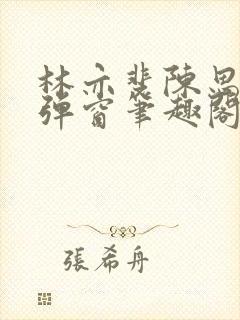 林亦裴陳恩
彈窗筆趣閣
張希舟